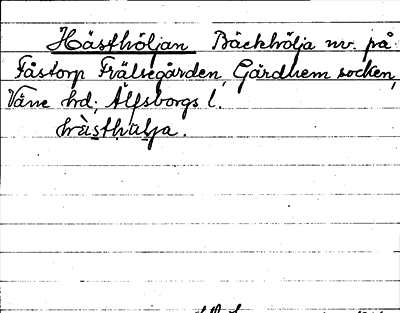 Hästhöljan Bäckhölja nv. på
Fåstorp Frälsegården, Gärdhem socken,
Väne hd, Älfsborgs l.
hästhulja.